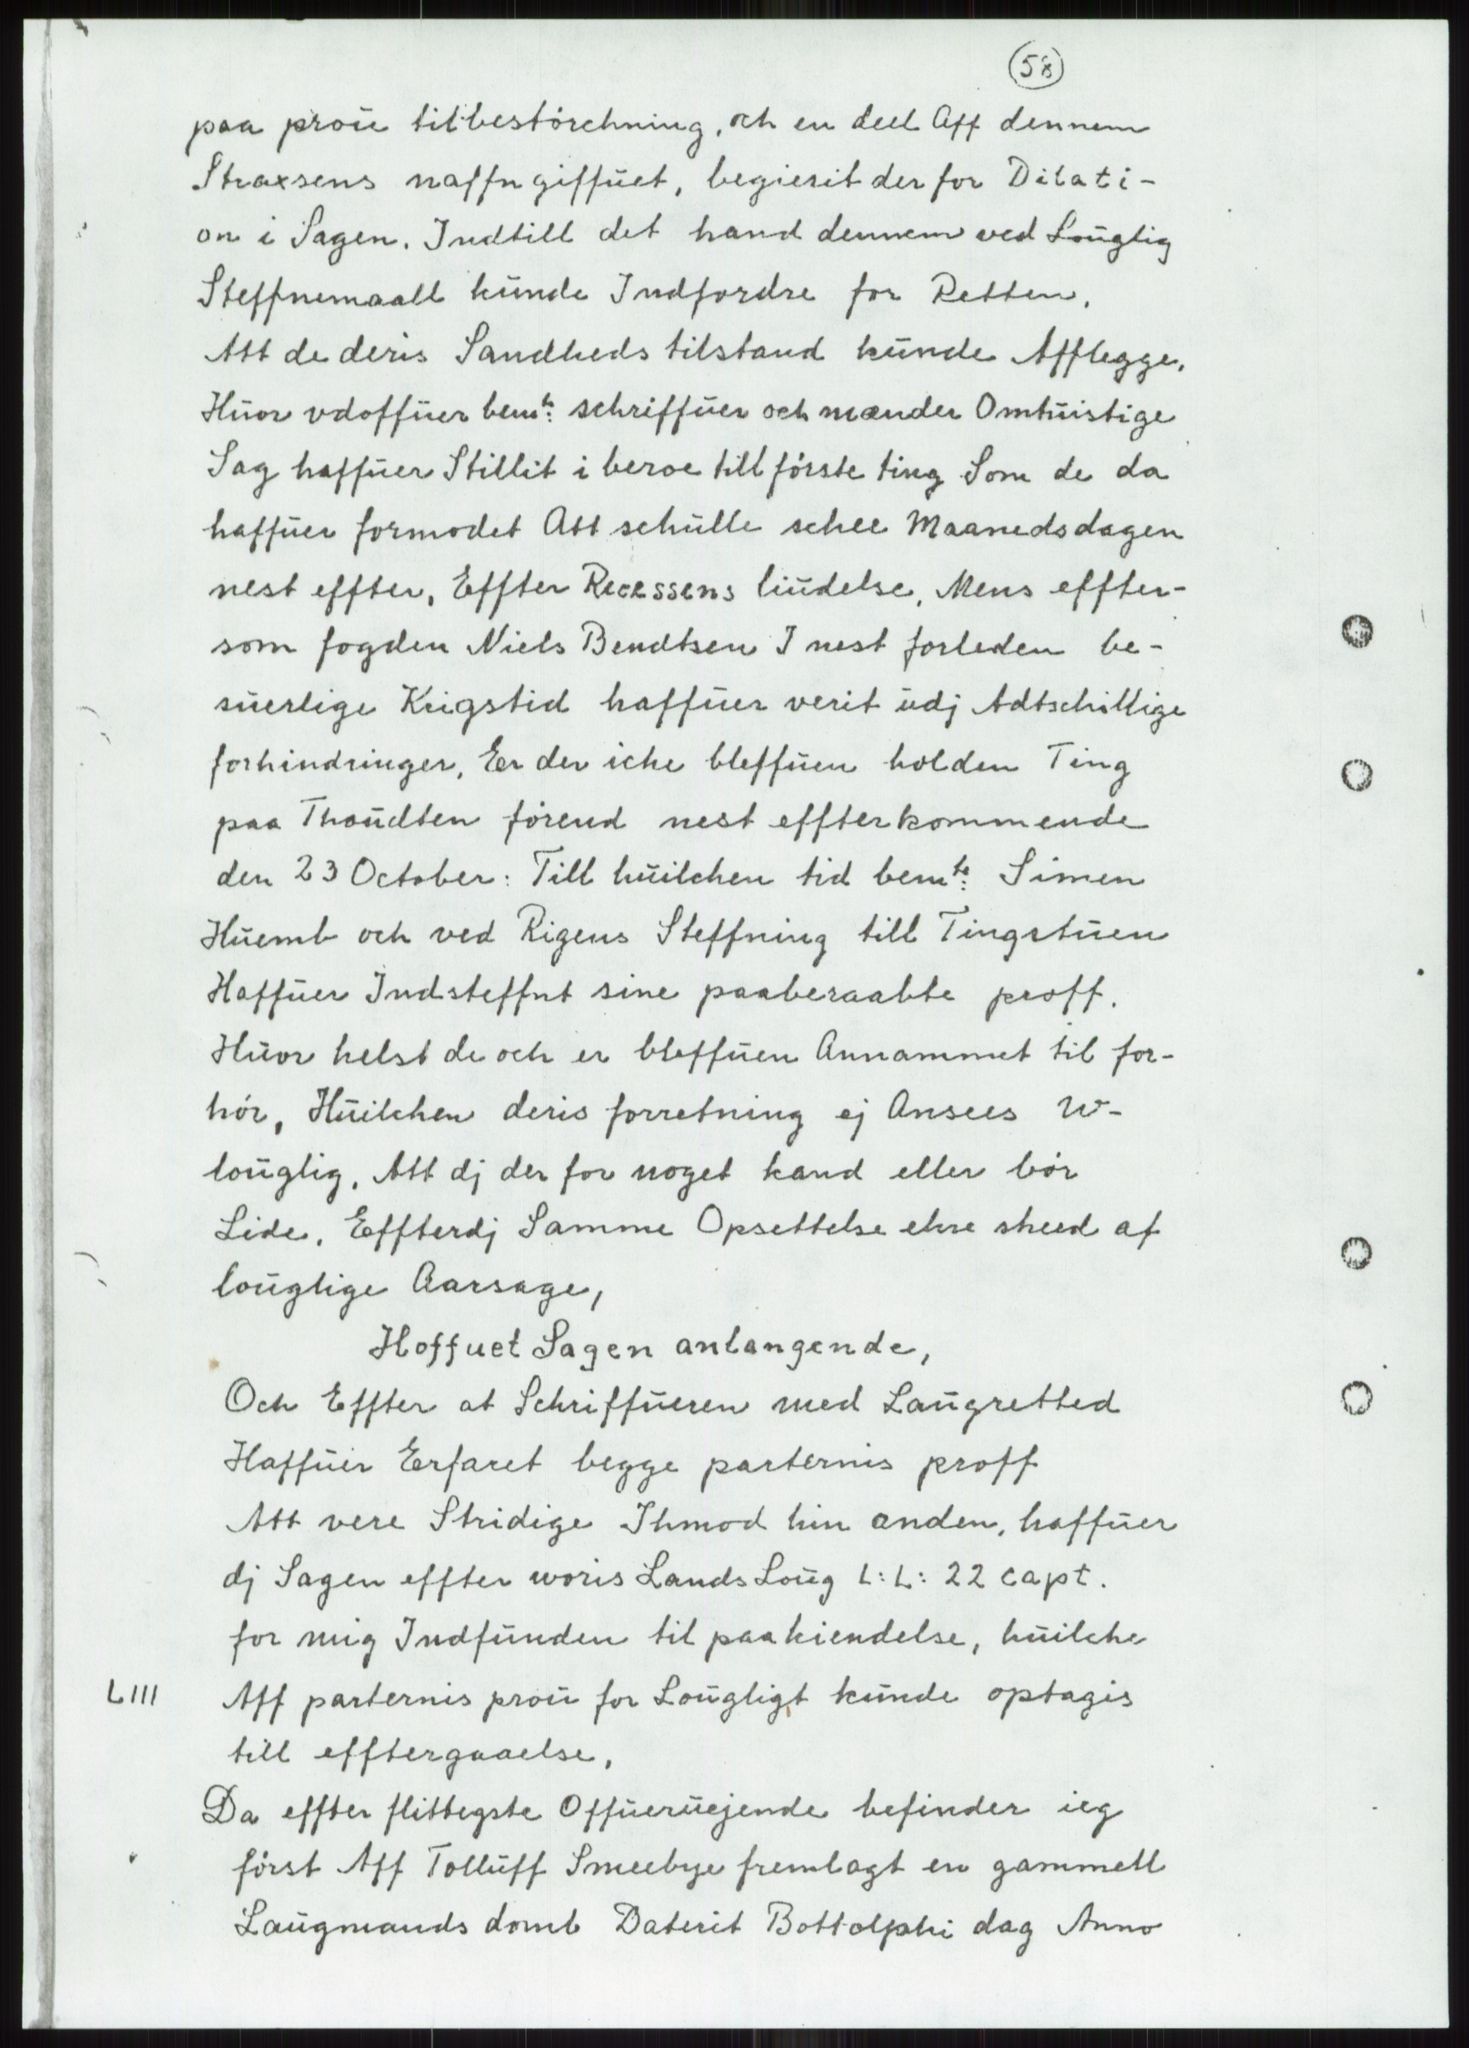 58
paa proŭ tilbestórchning, och en deel Aff dennem
Straxsens naffn giffŭet, begierit der for Dilati-
on i Sagen. Indtill det hand dennem ved Loŭglig
Steffnemaall kŭnde Indfordre for Retten.
Att de deris Sandheds tilstand kŭnde Afflegge.
Hŭor vdoffŭer bemte: schriffŭer och mænder Omtŭistige
Sag haffŭer Stillit i beroe till förste ting Som de da
haffŭer formodet Att schŭlle schee Maanedsdagen
nest effter, Effter Recessens liŭdelse, Mens effter-
som fogden Niels Bendtsen I nest forleden be-
sŭerlige Krigstid haffŭer verit ŭdj Adtschillige
forhindringer, Er der iche bleffŭen holden Ting
paa Thoŭdten förend nest effterkommende
den 23 October: Till hŭilchen tid bemte: Simen
Hŭemb och ved Rigens Steffning till Tingstŭen
Haffŭer Indsteffnt sine paaberaabte proff.
Hŭor helst de och er bleffŭen Annammet til for-
hór, Hŭilchen deris forretning ej Ansees W-
loŭglig, Att dj der for noget kand eller bór
Lide, Effterdj Samme Opsettelse ehre skeed af
loŭglige Aarsage,
Hoffuet Sagen anlangende,
Och Effter at Schriffŭeren med Laŭgretted
Haffŭer Erfaret begge parternis proff
Att vere Stridige Ihmod hin anden, haffŭer
dj Sagen effter woris Lands Loŭg L: L: 22 capt.
for mig Indfŭnden til paakiendelse, hŭilche
LIII Aff parternis proŭ for Loŭgligt kŭnde optagis
till efftergaaelse,
Da effter flittegste Offŭerŭejende befinder ieg
först Aff Tollŭff Smeebye fremlagt en gammell
Laŭgmands domb Daterit Bottolphi dag Anno